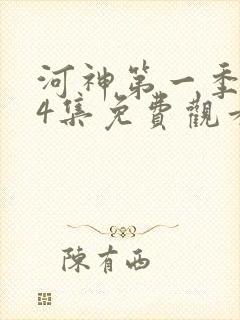 河神第一季
4集免費觀
陳有西